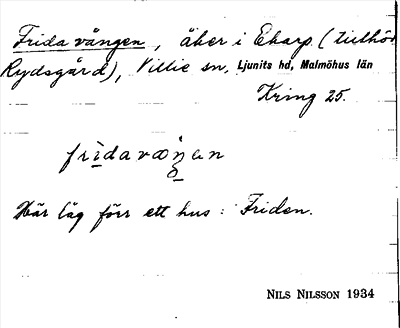 Frida vången, åker i Ekarp (tillhör
Rydsgård), Villie sn, Ljunits hd, Malmöhus län
Kring 25.
frìdavæŋ̊an
Här låg förr ett hus: Friden.
NILS NILSSON 1934